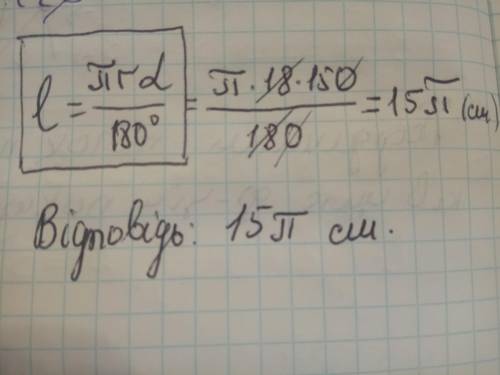 l = πrα/180° = π·18·150/180 = 15π (см)
Відповідь: 15π см.